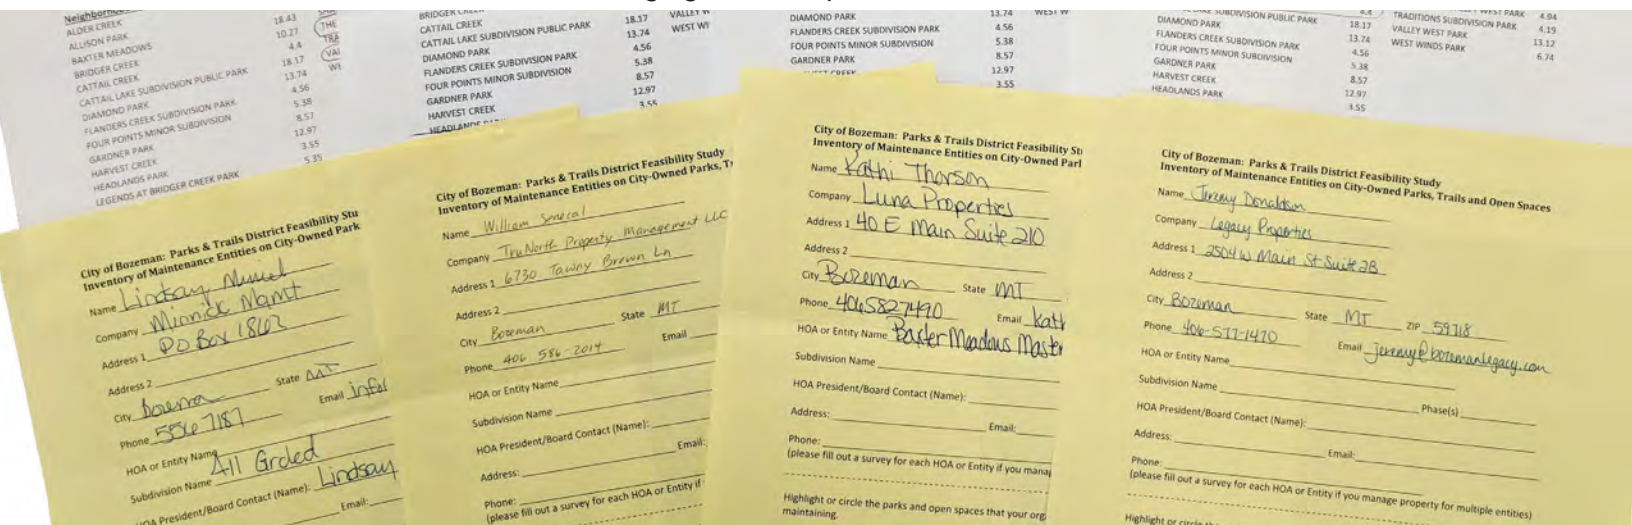 Neighborhood
ALDER CREEK 18.43
ALLISON PARK 10.27 THE
BAXTER MEADOWS 4.4 TRA
BRIDGER CREEK 18.17 VAL
CATTAIL CREEK 13.74 WE
CATTAIL LAKE SUBDIVISION PUBLIC PARK 4.56
DIAMOND PARK 5.38
FLANDERS CREEK SUBDIVISION PARK 8.57
FOUR POINTS MINOR SUBDIVISION 12.97
GARDNER PARK 3.55
HARVEST CREEK 5.35
HEADLANDS PARK
LEGENDS AT BRIDGER CREEK PARK
BRIDGER CREEK
CATTAIL CREEK 18.17 VALLEY W
CATTAIL LAKE SUBDIVISION PUBLIC PARK 13.74 WEST WI
DIAMOND PARK 4.56
FLANDERS CREEK SUBDIVISION PARK 5.38
FOUR POINTS MINOR SUBDIVISION 8.57
GARDNER PARK 12.97
HARVEST CREEK 3.55
HEADLANDS
DIAMOND PARK 13.74 WEST W
FLANDERS CREEK SUBDIVISION PARK 4.56
FOUR POINTS MINOR SUBDIVISION 5.38
GARDNER PARK 8.57
12.97
3.55
LAKE SUBDIVISION PUBLIC PARK 4.4 TRADITIONS SUBDIVISION PARK 4.94
DIAMOND PARK 18.17 VALLEY WEST PARK 4.19
FLANDERS CREEK SUBDIVISION PARK 13.74 WEST WINDS PARK 13.12
FOUR POINTS MINOR SUBDIVISION 4.56 6.74
GARDNER PARK 5.38
HARVEST CREEK 8.57
HEADLANDS PARK 12.97
3.55
City of Bozeman: Parks & Trails District Feasibility Stu
Inventory of Maintenance Entities on City-Owned Park
Name Lindsay
Company Minnick Mgmt
Address 1 PO Box 1862
Address 2
City State MT
Phone 556 7187 Email info
HOA or Entity Name
Subdivision Name All
HOA President/Board Contact (Name): Lindsay
Email:
City of Bozeman: Parks & Trails District Feasibility Study
Inventory of Maintenance Entities on City-Owned Parks, Tr
Name William Senecal
Company TruNorth Property Management LLC
Address 1 6730 Tawny Brown Ln
Address 2
City Bozeman State MT
Phone 406 586-2014 Email
HOA or Entity Name
Subdivision Name
HOA President/Board Contact (Name):
Address: Email:
Phone:
(please fill out a survey for each HOA or Entity if
City of Bozeman: Parks & Trails District Feasibility Stu
Inventory of Maintenance Entities on City-Owned Parl
Name Kathi Thorson
Company Luna Properties
Address 1 40 E Main Suite 210
Address 2
City Bozeman State MT
Phone 4065827490 Email Kath
HOA or Entity Name Baxter Meadows Master
Subdivision Name
HOA President/Board Contact (Name):
Address: Email:
Phone:
(please fill out a survey for each HOA or Entity if you manag
Highlight or circle the parks and open spaces that your org
maintaining.
City of Bozeman: Parks & Trails District Feasibility Study
Inventory of Maintenance Entities on City-Owned Parks, Trails and Open Spaces
Name Jeremy Donaldson
Company Legacy Properties
Address 1 2504 W Main St Suite 2B
Address 2
City Bozeman State MT ZIP 59718
Phone 406-577-1470 Email jeremy@bozemanlegacy.com
HOA or Entity Name
Subdivision Name Phase(s)
HOA President/Board Contact (Name):
Address: Email:
Phone:
(please fill out a survey for each HOA or Entity if you manage property for multiple entities)
Highlight or circle the